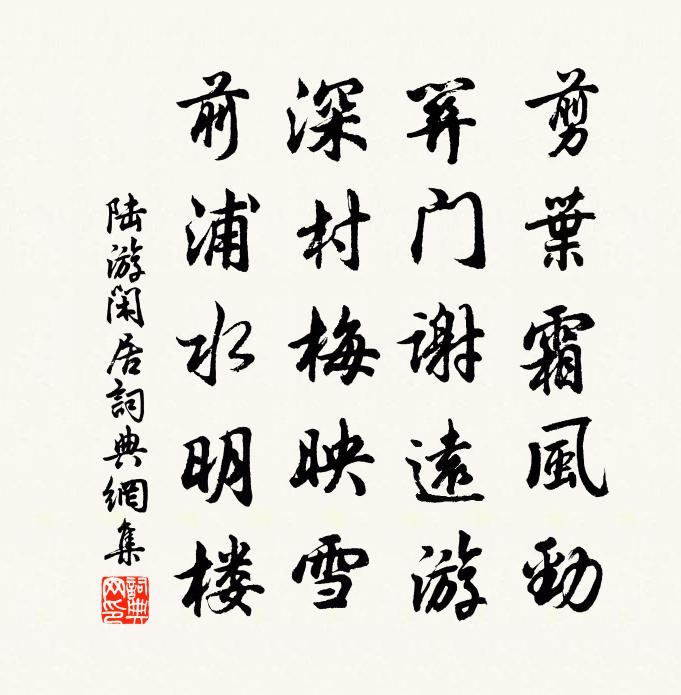 剪葉霜風勁
笄门謝遠游
深村梅映雪
前浦水明楼
陆游闲居詞典網集
詞典网印